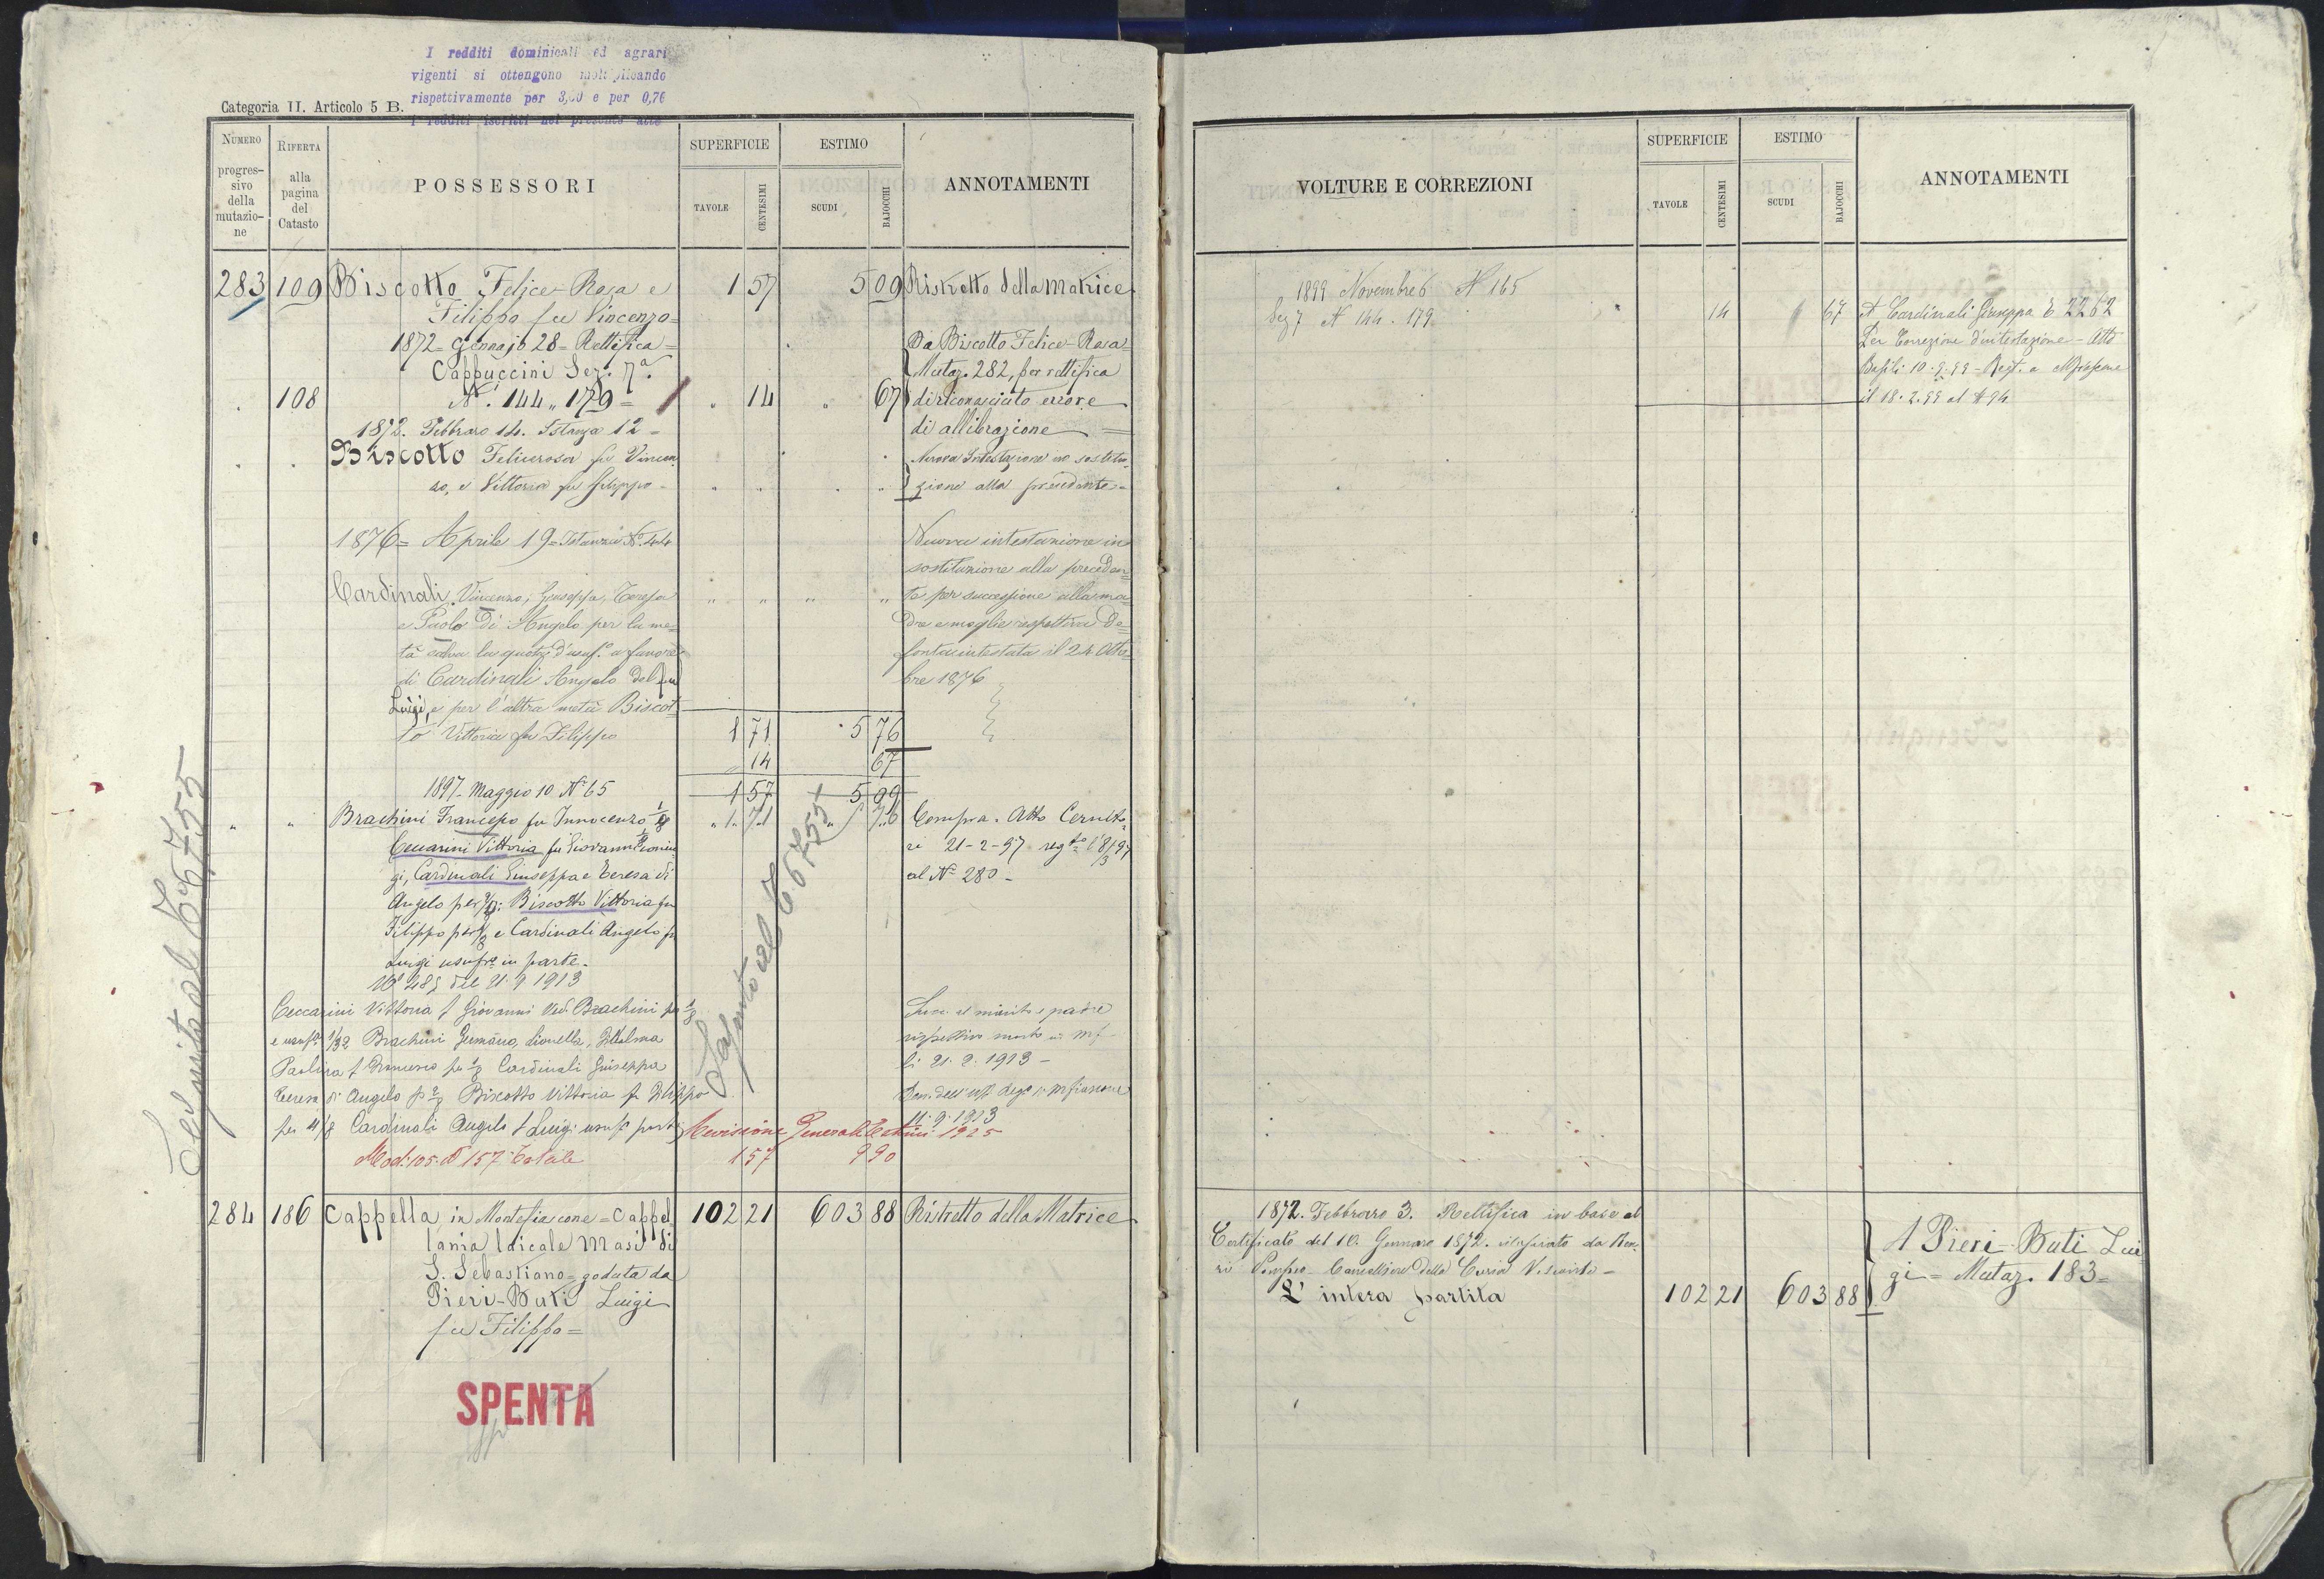 I redditi dominicali ed agrari
vigenti si ottengono moltiplicando
rispettivamente per 3,00 e per 0,76
i redditi iscritti nel presente atto
Categoria II. Articolo 5 B.
NUMERO progressivo della mutazione
RIFERTA alla pagina del Catasto
POSSESSORI
SUPERFICIE
TAVOLE
CENTESIMI
ESTIMO
SCUDI
BAJOCCHI
ANNOTAMENTI
283 109 Biscotto Felice-Rosa e 1 57 5 09 Ristretto della matrice
Filippo fu Vincenzo=
1872= Gennajo 28= Rettifica= Da Biscotto Felice-Rosa=
Cappuccini Sez. 7a. Mutaz. 282, per rettifica
" 108 Ni. 144 " 179= " 14 " 67 di riconosciuto errore
1872. Febbraro 14. Istanza 12= di allibrazione=
" " Biscotto Felicerosa fu Vincen- Nuova Intestazione in sostitu-
zo, e Vittoria fu Filippo - " " " " zione alla precedente=
1876= Aprile 19= Istanza No. 44 Nuova intestazione in
sostituzione alla preceden=
Cardinali Vincenzo, Giuseppa, Teresa " " " " te per successione alla ma=
e Paolo di Angelo per la me= dre e moglie rispettiva De=
tà salva la quota d'usuf.o a favore fonta intestata il 24 Otto=
di Cardinali Angelo del fu bre 1876
Luigi, e per l'altra metà Biscot=
to Vittoria fu Filippo 1 71 5 76
14 67
1897. Maggio 10. No 65 1 57 5 09
" " Brachini Francesco fu Innocenzo 1/8 " 1. 71 " 5 76 Compra. Atto Cernito-
Ceccarini Vittoria fu Giovanni 1/8 ri 21-2-97 regto l'8/3 97
gi, Cardinali Giuseppa e Teresa di al No 280 -
Angelo per 2/8: Biscotto Vittoria fu
Filippo per 4/8 e Cardinali Angelo fu
Luigi usufro in parte.
del 21. 9 1913
Ceccarini Vittoria f Giovanni Ved. Brachini per 1/8 Succ. al marito e padre
e usufo 1/32 Brachini Lionella, rispettivo morto in Mf
Paolina f Francesco per 1/8 Cardinali Giuseppa li 21. 2. 1913 -
Teresa di Angelo p 2/8 Biscotto Vittoria fu Filippo
per 4/8 Cardinali Angelo f Luigi usufo parte 11. 9. 1913
Revisione Generale Estimi 1925
Mod. 105. No 157 157 990
Segnito al 6.6755
Seguito al 6.6755
284 186 Cappella in Montefiascone = Cappel 102 21 603 88 Ristretto della Matrice
lania laicale Masi di
S. Sebastiano=goduta da
Pieri-Buti Luigi
fu Filippo=
SPENTA
VOLTURE E CORREZIONI
SUPERFICIE
TAVOLE
CENTESIMI
ESTIMO
SCUDI
BAJOCCHI
ANNOTAMENTI
1899 Novembre 6 No 165
Sez 7 No 144. 179. 14 67 A Cardinali Giuseppa E 2262
Per Correzione d'intestazione - Atto
Basili 10.2.99 - Regt. a Mfiascone
il 18.2.99 al No 94
1872. Febbraro 3. Rettifica in base al
Certificato del 10. Gennaro 1872. rilasciato da
Pompeo Cancelliere della Curia Vescovile -
L' intera partita 102 21 603 88
A Pieri-Buti Lui
gi = Mutaz. 183=